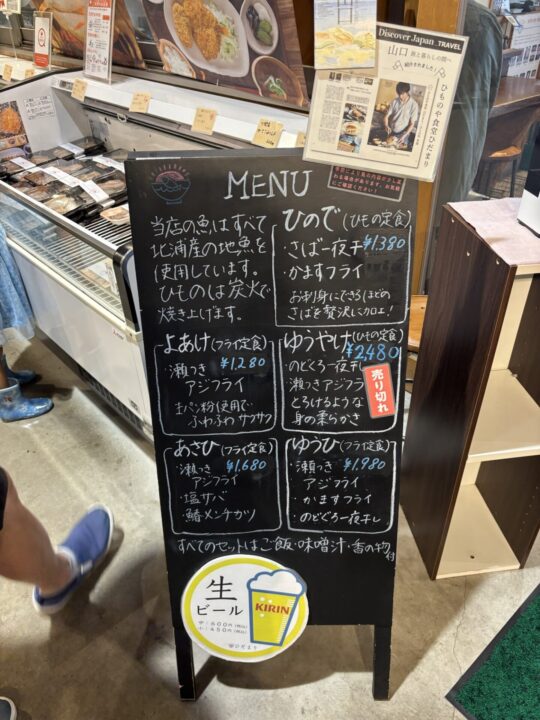 Discover Japan_TRAVEL
山口
ひものや食堂ひだまり
MENU
当店の魚はすべて
北浦産の地魚を
使用しています。
ひものは炭火で
焼き上げます。
ひので(ひもの定食)
・さば一夜干 ¥1,380
・かますフライ
お刺身にできるほどの
さばを贅沢に加工!
よあけ(フライ定食)
・瀬つき ¥1,280
アジフライ
生パン粉使用で
ふわふわ サクサク
ゆうやけ(ひもの定食)
¥2,480
・のどくろ一夜干し
・瀬つきアジフライ
とろけるような
身の柔らかさ
売り切れ
あさひ(フライ定食)
・瀬つき ¥1,680
アジフライ
・塩サバ
・鰆メンチカツ
ゆうひ(フライ定食)
・瀬つき ¥1,980
アジフライ
・かますフライ
・のどぐろ一夜干し
すべてのセットはご飯・味噌汁・香の物付
生
ビール
KIRIN
中:600円(税込)
小:450円(税込)
ひだまり